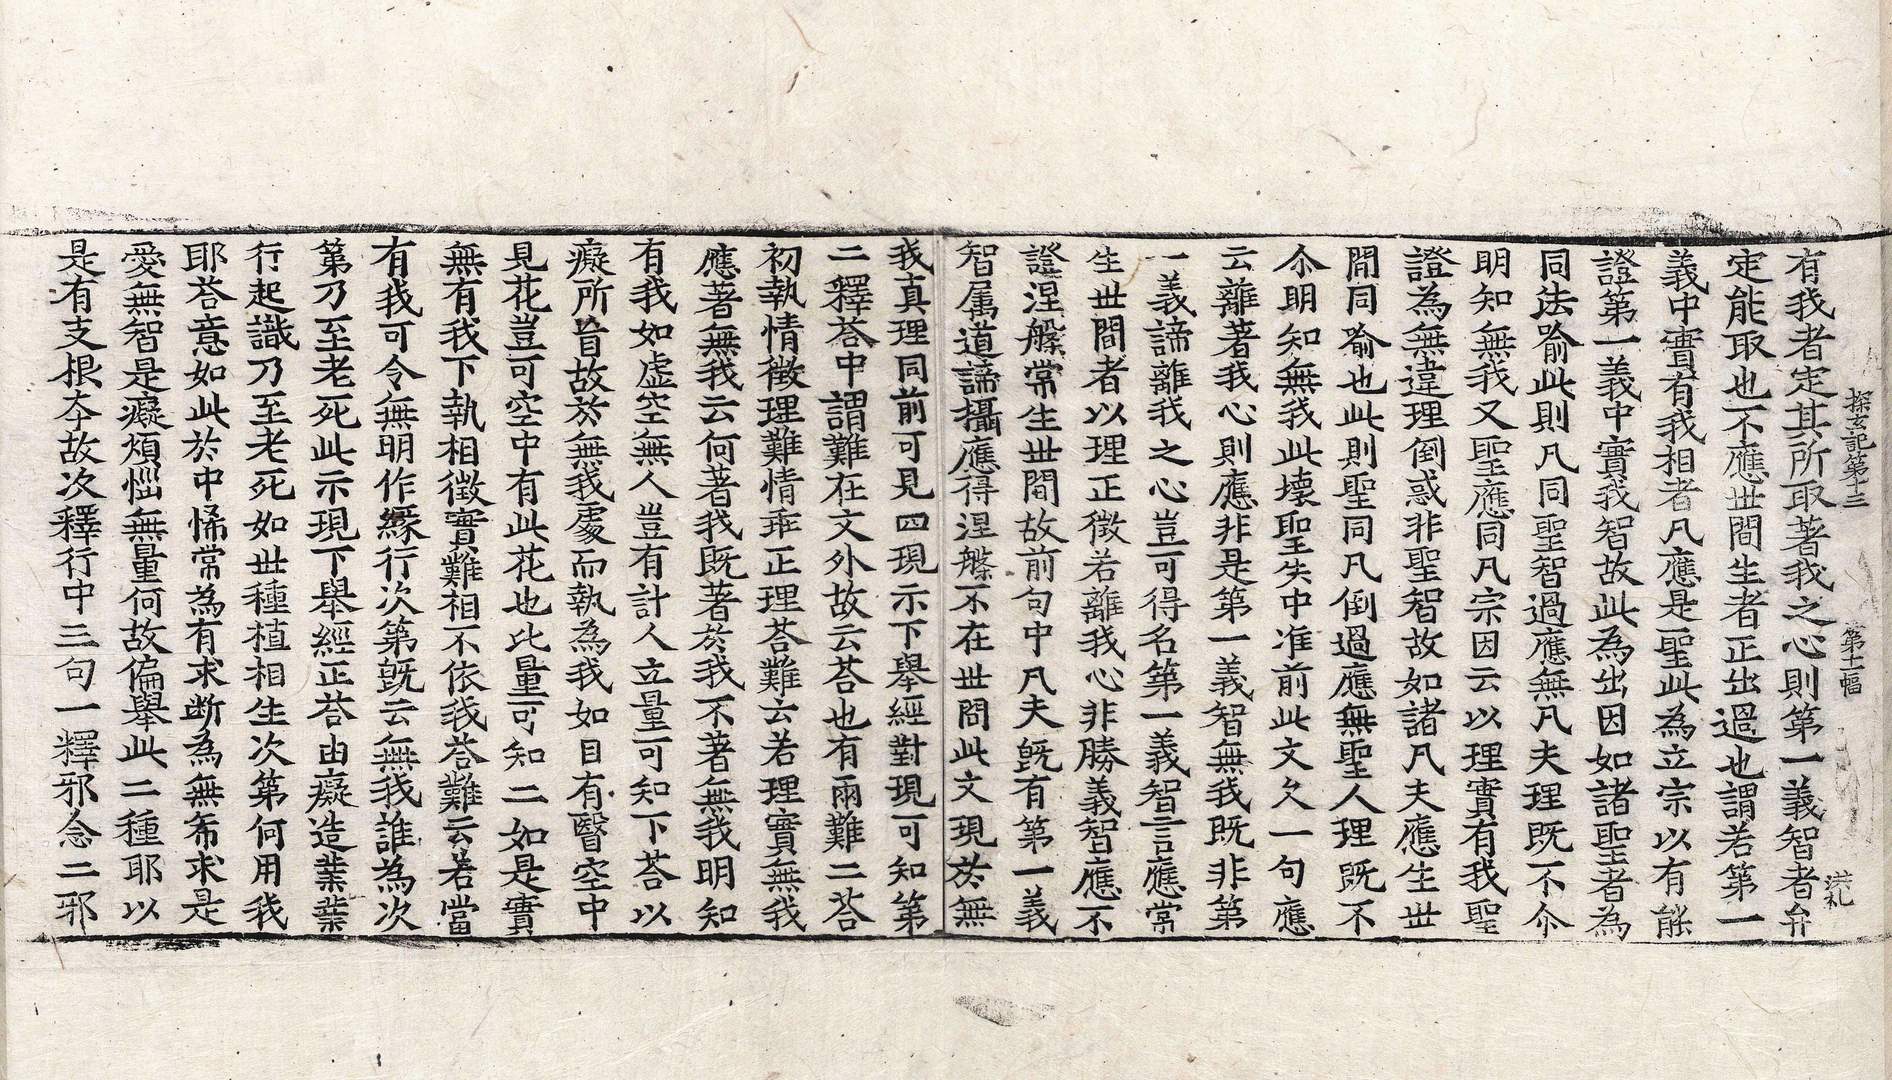 探玄記第十三　第十二幅　洪礼
有我者定其所取著我之心則第一義智者弁
定能取也不應世間生者正出過也謂若第一
義中實有我相者凡應是聖此為立宗以有能
證第一義中實我智故此為出因如諸聖者為
同法喻此則凡同聖智過應無凡夫理既不尒
明知無我又聖應同凡宗因云以理實有我聖
證為無違理倒惑非聖智故如諸凡夫應生世
間同喻也此則聖同凡倒過應無聖人理既不
尒明知無我此壞聖失中准前此文欠一句應
云離著我心則應非是第一義智無我既非第
一義諦離我之心豈可得名第一義智言應常
生世間者以理正徵若離我心非勝義智應不
證涅槃常生世間故前句中凡夫既有第一義
智属道諦攝應得涅槃不在世間此文現於無
我真理同前可見四現示下舉經對現可知第
二釋荅中謂難在文外故云荅也有兩難二荅
初執情徵理難情乖正理荅難云若理實無我
應著無我云何著我既著於我不著無我明知
有我如虛空無人豈有計人立量可知下荅以
癡所盲故於無我處而執為我如目有翳空中
見花豈可空中有此花也比量可知二如是實
無有我下執相徵實難相不依我荅難云若當
有我可令無明作緣行次第既云無我誰為次
第乃至老死此示現下舉經正荅由癡造業業
行起識乃至老死如世種植相生次第何用我
耶荅意如此於中悕常為有求断為無希求是
愛無智是癡煩惱無量何故偏舉此二種耶以
是有支根夲故次釋行中三句一釋邪念二邪